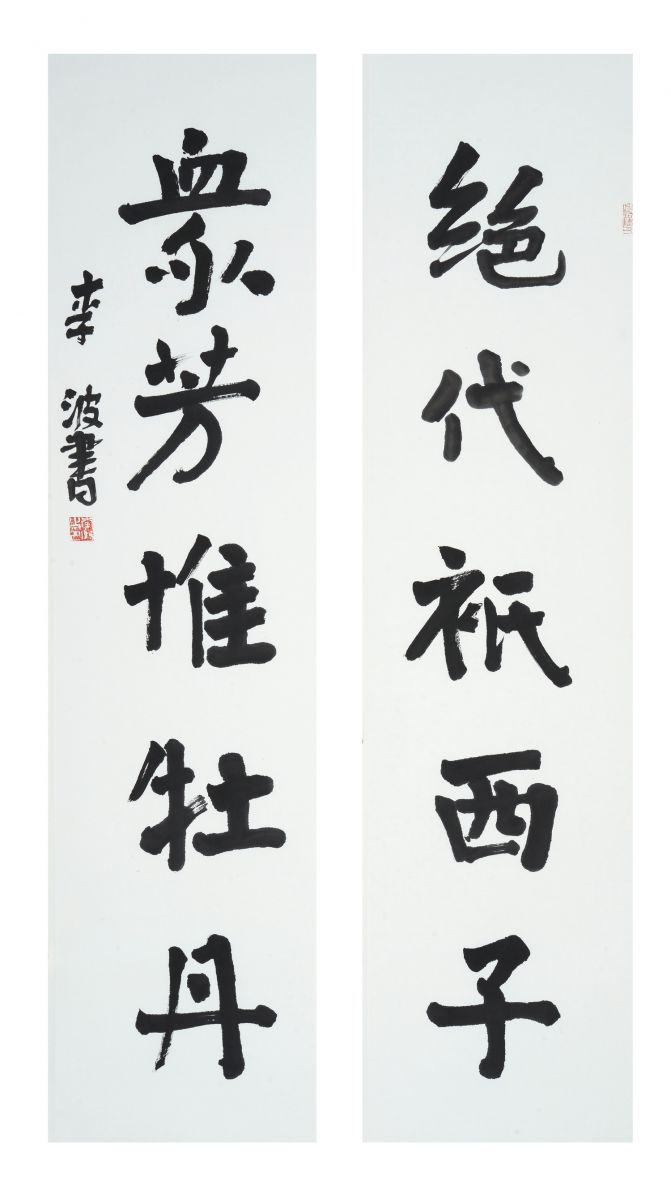 绝代衹西子
衆芳惟牡丹
李波書